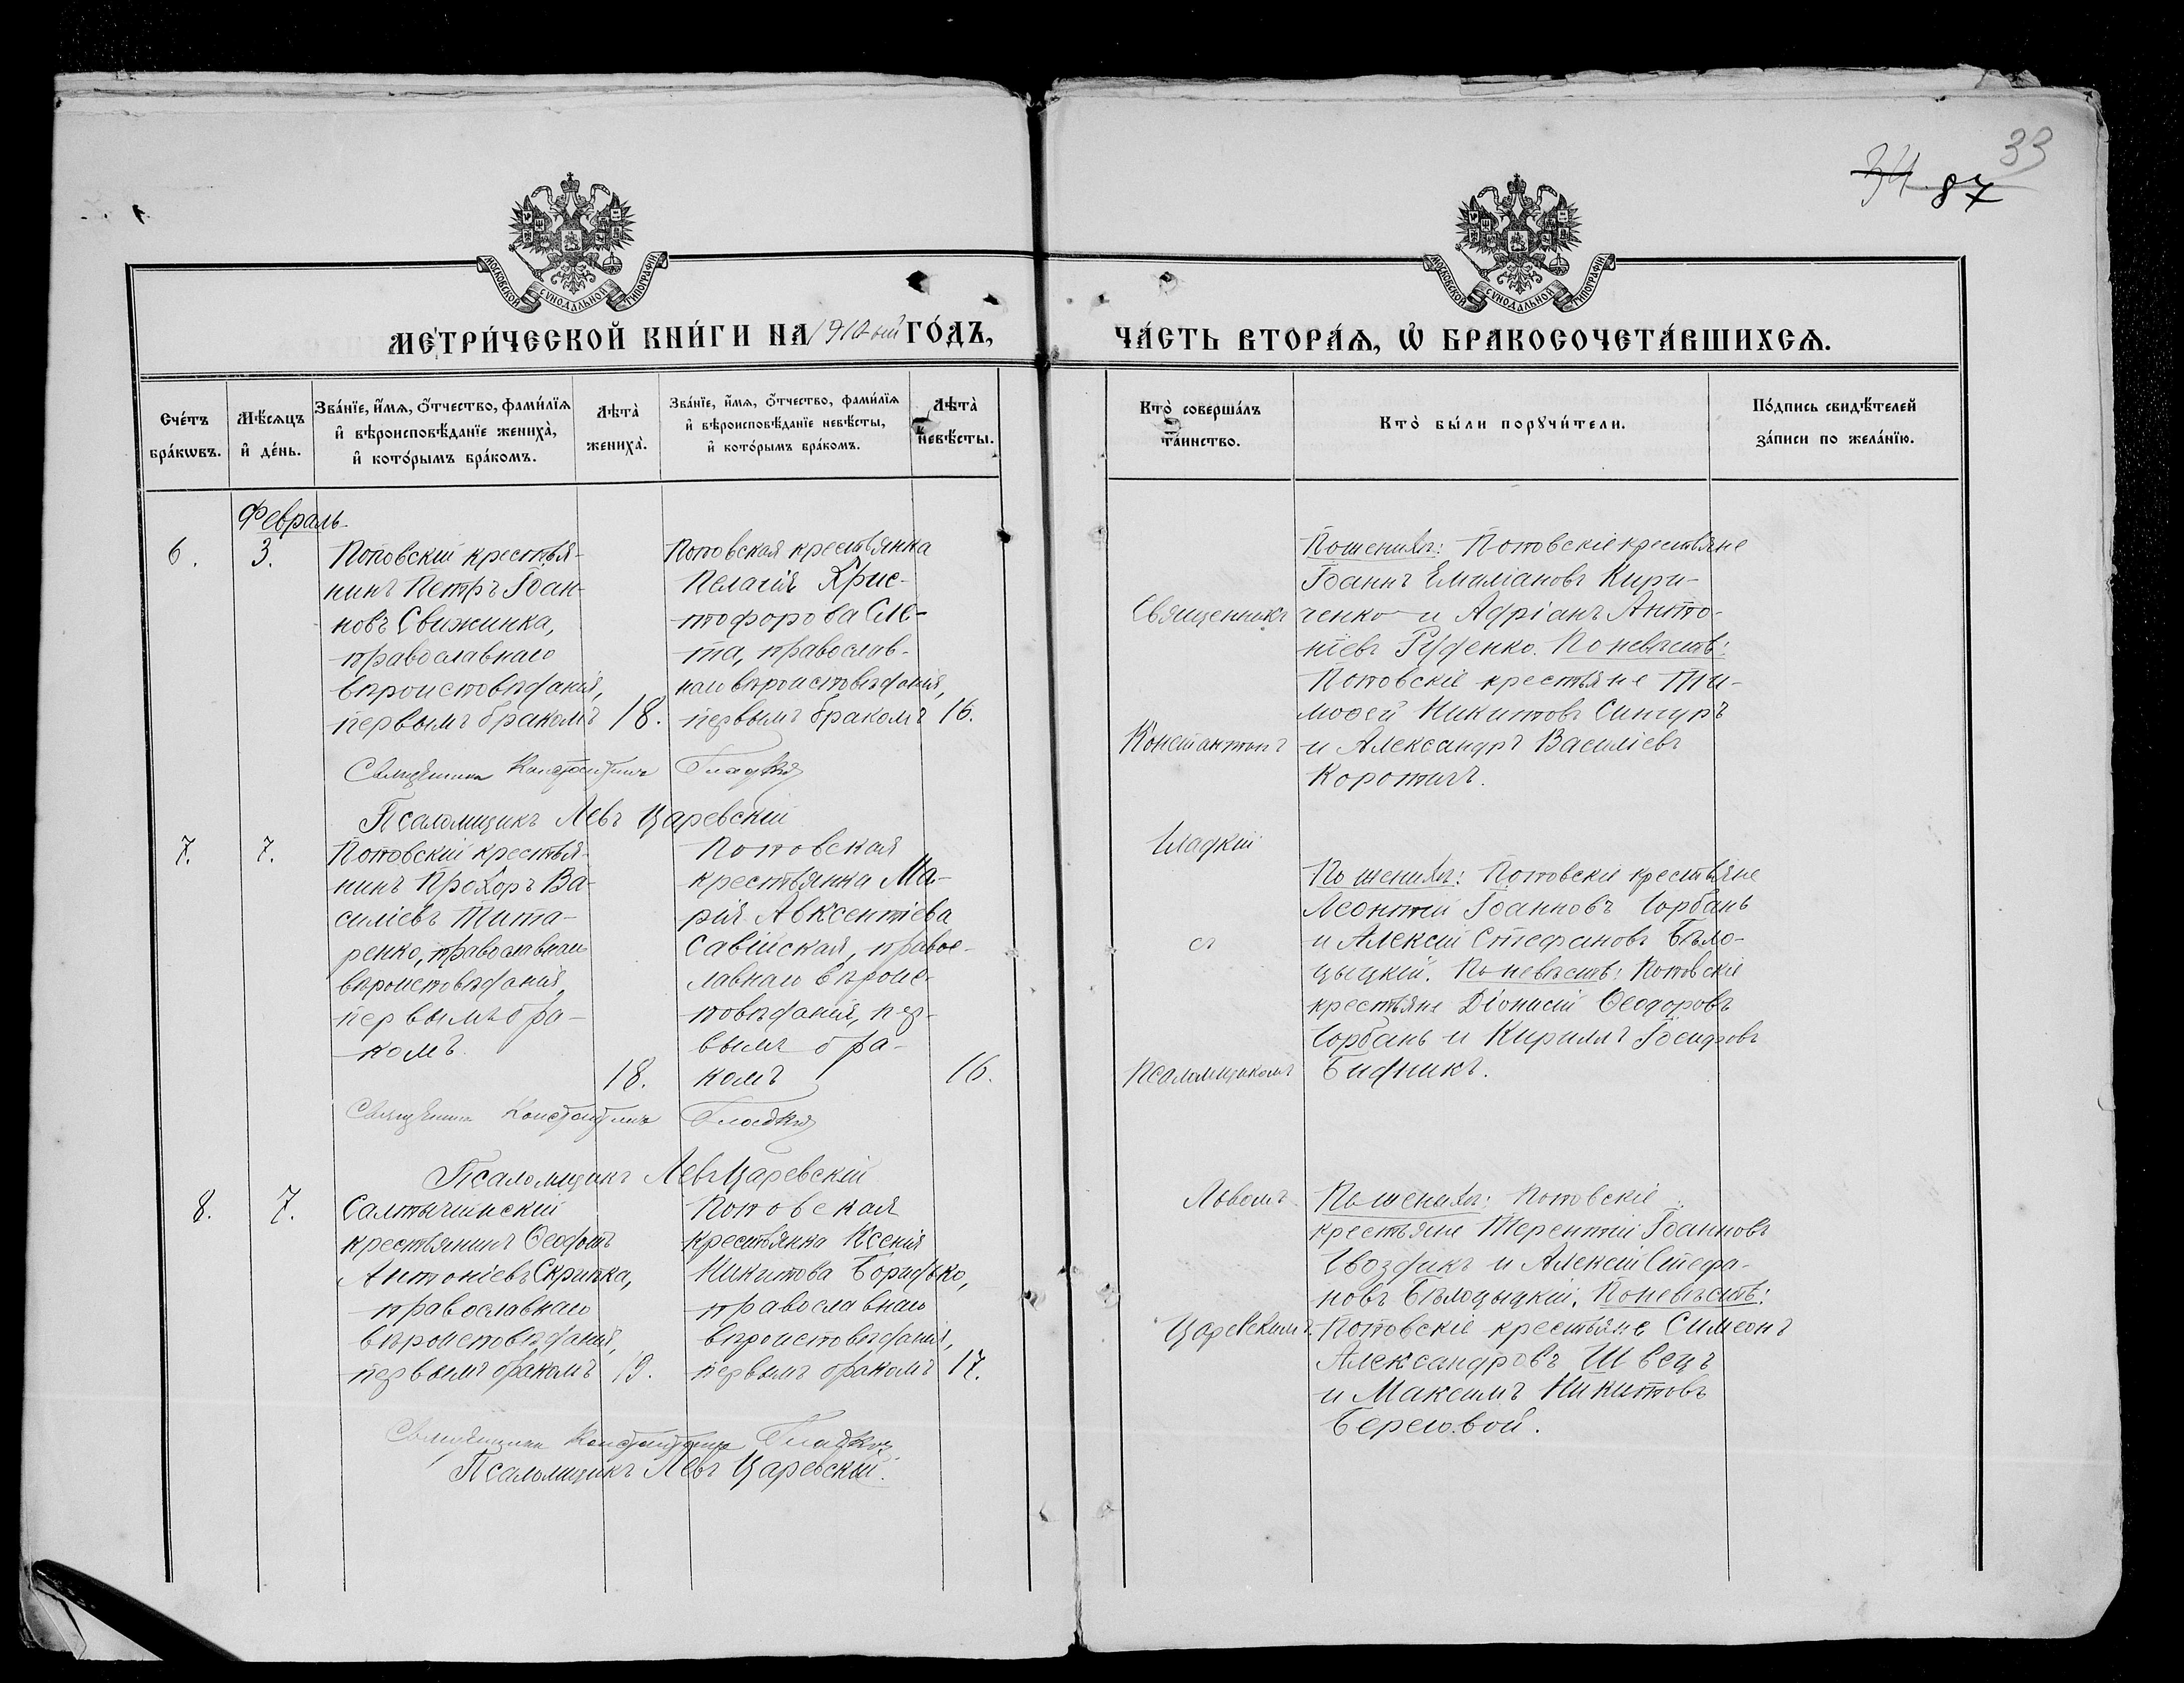 33
34 87
МОСКОВСКОЙ СѴНОДАЛЬНОЙ ТИПОГРАФІИ
МОСКОВСКОЙ СѴНОДАЛЬНОЙ ТИПОГРАФІИ
МЕТРИ́ЧЕСКОЙ КНИ́ГИ НА 1910-ый ГО́ДЪ,
ЧА́СТЬ ВТОРА́Ѧ, Ѽ БРАКОСОЧЕТА́ВШИХСѦ.
Сче́тъ бра́кѡвъ.
Мѣ́сѧцъ и҆ де́нь.
Зва́нїе, и҆́мѧ, ѻ҆́тчество, фами́лїѧ
и҆ вѣроисповѣ́данїе жениха̀,
и҆ кото́рымъ бра́комъ.
Лѣта̀ жениха̀.
Зва́нїе, и҆́мѧ, ѻ҆́тчество, фами́лїѧ
и҆ вѣроисповѣ́данїе невѣ́сты,
и҆ кото́рымъ бра́комъ.
Лѣта̀ невѣ́сты.
Кто̀ соверша́лъ
та́инство.
Кто̀ бы́ли порꙋчи́тели.
По́дпись свидѣ́телей
за́писи по жела́нїю.
Февраль
6.
3.
Поповскій крестья-
нинъ Петръ Іоан-
новъ Свижинка,
православнаго
вѣроисповѣданія,
первымъ бракомъ
18.
Поповская крестьянка
Пелагія Хрис-
тофорова Сле-
та, православ-
наго вѣроисповѣданія,
первымъ бракомъ
16.
Священникъ Константинъ Гладкій
Псаломщикъ Левъ Царевскій
7.
7.
Поповскій крестья-
нинъ Прохоръ Ва-
силіевъ Тита-
ренко, православнаго
вѣроисповѣданія,
первымъ бра-
комъ.
18.
Поповская
крестьянка Ма-
рія Авксентіева
Савійская, правос-
лавнаго вѣроис-
повѣданія, пер-
вымъ бра-
комъ
16.
Священникъ Константинъ Гладкій
Псаломщикъ Левъ Царевскій
8.
7.
Салтычинскій
крестьянинъ Ѳеофанъ
Антоніевъ Скрипка,
православнаго
вѣроисповѣданія,
первымъ бракомъ
19.
Поповская
крестьянка Ксенія
Никитова Боридько,
православнаго
вѣроисповѣданія,
первымъ бракомъ
17.
Священникъ Константинъ Гладкій
Псаломщикъ Левъ Царевскій.
Священникъ
Константинъ
Гладкій
съ
Псаломщикомъ
Львомъ
Царевскимъ.
По женихѣ: Поповскіе крестьяне
Іоаннъ Емиліановъ Кири-
ченко и Адріанъ Анто-
ніевъ Руденко. По невѣстѣ:
Поповскіе крестьяне Ти-
моѳей Никитовъ Сингуръ
и Александръ Василіевъ
Коротичъ.
По женихѣ: Поповскіе крестьяне
Леонтій Іоанновъ Горбань
и Алексій Стефановъ Бѣло-
цыцкій. По невѣстѣ: Поповскіе
крестьяне Діонисій Ѳеодоровъ
Горбань и Кириллъ Іосифовъ
Бидникъ.
По женихѣ: Поповскіе
крестьяне Терентій Іоанновъ
Гвоздикъ и Алексій Стефа-
новъ Бѣлоцыцкій. По невѣстѣ:
Поповскіе крестьяне Симеонъ
Александровъ Швецъ
и Максимъ Никитовъ
Береговой.